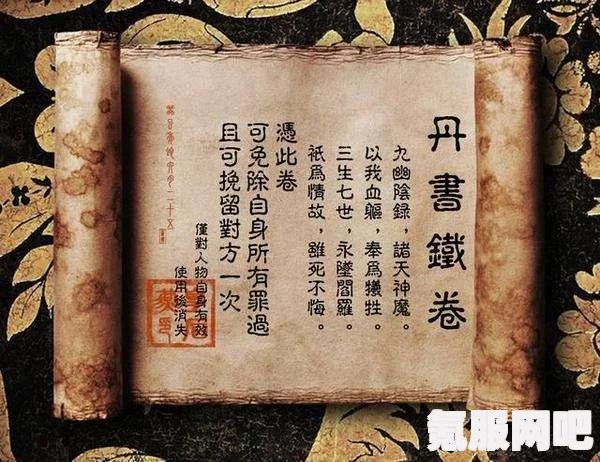 丹書鐵卷
九幽陰録，諸天神魔。
以我血軀，奉爲犠牲。
三生七世，永墜閻羅。
衹爲情故，雖死不悔。
憑此卷
可免除自身所有罪過
且可挽留對方一次
僅對人物自身有效
使用後消失
氪服网吧